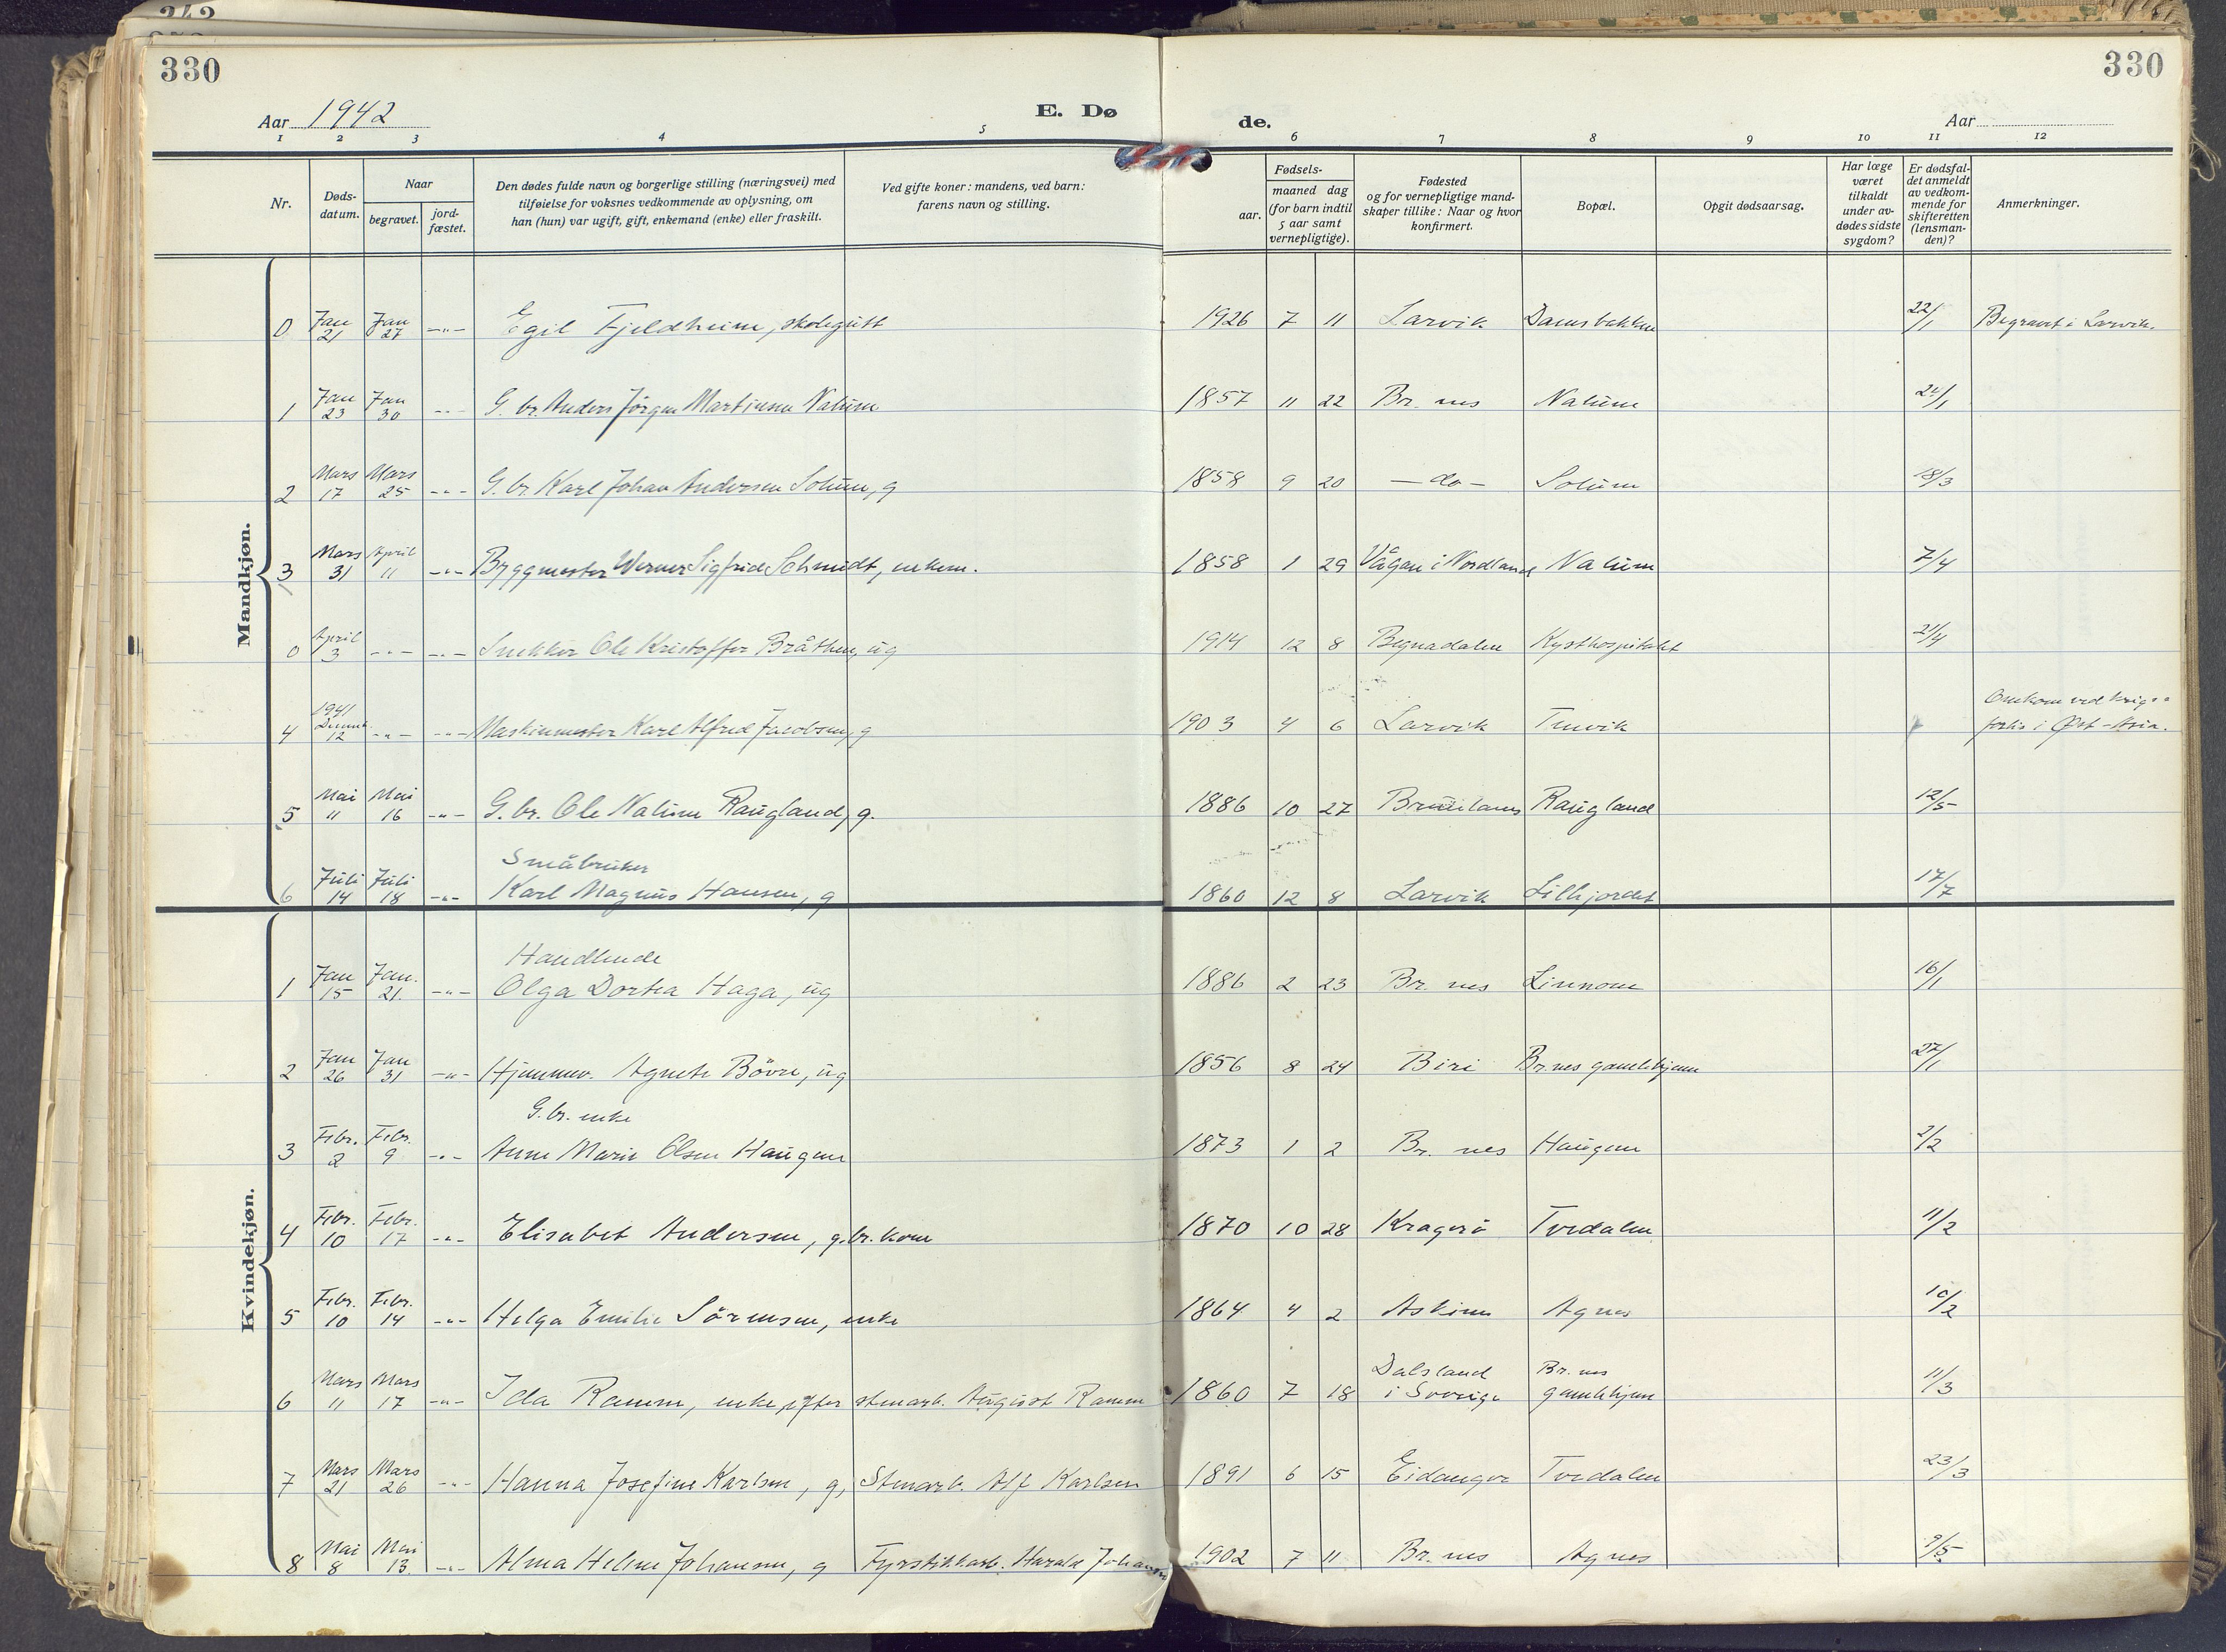 330
330
Aar 1942
E. Dø
de.
Aar
1 2 3 4 5 6 7 8 9 10 11 12
Nr.
Døds-
datum.
Naar
begravet.
jord-
fæstet.
Den dødes fulde navn og borgerlige stilling (næringsvei) med
tilføielse for voksnes vedkommende av oplysning, om
han (hun) var ugift, gift, enkemand (enke) eller fraskilt.
Ved gifte koner: mandens, ved barn:
farens navn og stilling.
Fødsels-
aar.
maaned dag
(for barn indtil
5 aar samt
vernepligtige).
Fødested
og for vernepligtige mand-
skaper tillike: Naar og hvor
konfirmert.
Bopæl.
Opgit dødsaarsag.
Har læge
været
tilkaldt
under av-
dødes sidste
sygdom?
Er dødsfal-
det anmeldt
av vedkom-
mende for
skifteretten
(lensman-
den)?
Anmerkninger.
Mandkjøn.
0 Jan 21 Jan 27 -"- Egil Fjeldheim, skolegutt 1926 7 11 Larvik Damsbakken 22/1 Begravet i Larvik.
1 Jan 23 Jan 30 -"- G. br. Anders Jörgen Martinsen Nalum 1857 11 22 Br. nes Nalum 24/1
2 Mars 17 Mars 25 -"- G. br. Karl Johan Andersen Solum, g 1858 9 20 - do - Solum 18/3
3 Mars 31 April 11 -"- Byggmester Werner Sigfried Schmidt, enkem. 1858 1 29 Vågan i Nordland Nalum 7/4
0 April 3 -"- -"- Snekker Ole Kristoffer Bråthen, ug 1914 12 8 Begnadalen Kysthospitalet 21/4
4 1941 Desemb. 12 -"- -"- Maskinmester Karl Alfred Jacobsen, g 1903 4 6 Larvik Tenvik Omkom ved krigs-
forlis i Øst-Asia.
5 Mai 11 Mai 16 -"- G. br. Ole Nalum Raugland, g. 1886 10 27 Brunlanes Raugland 12/5
Småbruker
6 Juli 14 Juli 18 -"- Karl Magnus Hansen, g 1860 12 8 Larvik Lillejordet 17/7
Kvindekjøn.
Handlende
1 Jan 15 Jan. 21. -"- Olga Dortea Haga, ug 1886 2 23 Br. nes Linnom 16/1
2 Jan 26 Jan 31 -"- Hjemmev. Agnete Bövre, ug 1856 8 24 Biri Br.nes gamlehjem 27/1
G. br. enke
3 Febr. 2 Febr. 9 -"- Anne Marie Olsen Haugene 1873 1 2 Br. nes Haugene 2/2
4 Febr. 10 Febr. 17 -"- Elisabet Andersen, g.br. kone 1870 10 28 Kragerö Tvedalen 11/2
5 Febr. 10 Febr. 14 -"- Helga Emilie Sörensen, enke 1864 4 2 Askim Agnes 10/2
6 Mars 11 Mars 17 -"- Ida Ramm, enke efter stenarb. August Ramm 1860 7 18 Dalsland i Sverige Br. nes gamlehjem 11/3
7 Mars 21 Mars 26 -"- Hanna Josefine Karlsen, g, Stenarb. Alf Karlsen 1891 6 15 Eidanger Tvedalen 23/3
8 Mai 8 Mai 13. -"- Alma Helene Johansen, g Fyrstikkarb. Harald Johansen 1902 7 11 Br. nes Agnes 9/5